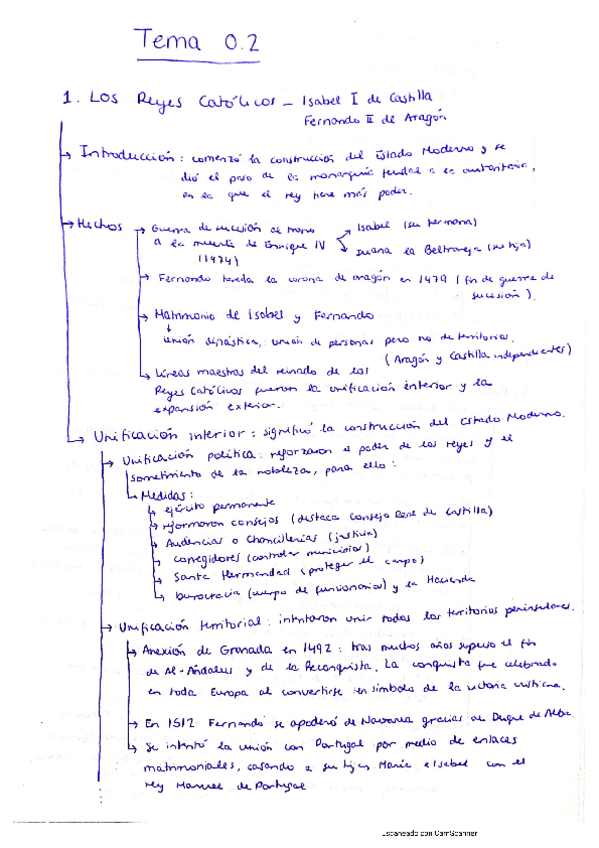 Tema 0.2
1. Los Reyes Católicos - Isabel I de Castilla
Fernando II de Aragón
→ Introducción: comenzó la construcción del Estado Moderno y se
dió el paso de la monarquía feudal a la autoritaria,
en la que el rey tiene más poder.
→ Hechos → Guerra de sucesión al trono → Isabel (su hermana)
a la muerte de Enrique IV → Juana la Beltraneja (su hija)
(1474)
→ Fernando hereda la corona de aragón en 1479 (fin de guerra de
sucesión).
→ Matrimonio de Isabel y Fernando
↓
Unión dinástica, unión de personas pero no de territorios.
(Aragón y Castilla independientes)
→ Líneas maestras del reinado de los
Reyes Católicos fueron la unificación interior y la
expansión exterior.
→ Unificación interior: significó la construcción del Estado Moderno.
→ Unificación política: reforzaron el poder de los reyes y el
sometimiento de la nobleza, para ello:
→ Medidas:
→ ejército permanente
→ reformaron consejos (destaca Consejo Real de Castilla)
→ Audencias o Chancillerías (justicia)
→ corregidores (controlar municipios)
→ Santa Hermandad (proteger el campo)
→ burocracia (cuerpo de funcionarios) y la Hacienda
→ Unificación territorial: intentaron unir todos los territorios peninsulares.
→ Anexión de Granada en 1492: tras muchos años supuso el fin
de Al-Ándalus y de la Reconquista. La conquista fue celebrada
en toda Europa al convertirse en símbolo de la victoria cristiana.
→ En 1512 Fernando se apoderó de Navarra gracias al Duque de Alba
→ Se intentó la unión con Portugal por medio de enlaces
matrimoniales, casando a sus hijas María e Isabel con el
rey Manuel de Portugal
Escaneado con CamScanner